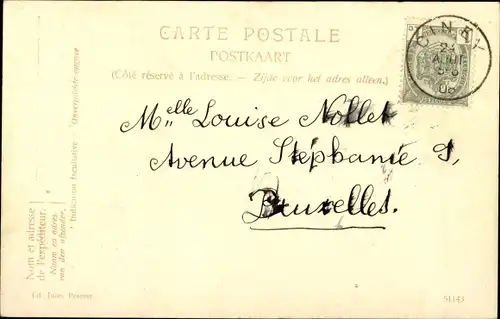 CARTE POSTALE
POSTKAART
(Côté réservé à l'adresse. — Zijde voor het adres alleen.)
CINEY
21
AOUT
Melle Louise Nollet
Avenue Stéphanie 9,
Bruxelles.
Nom et adresse
de l'expéditeur.
Naam en adres
van den afzender.
Indication facultative
Onverplichte opgave
Ed. Jules,
51143